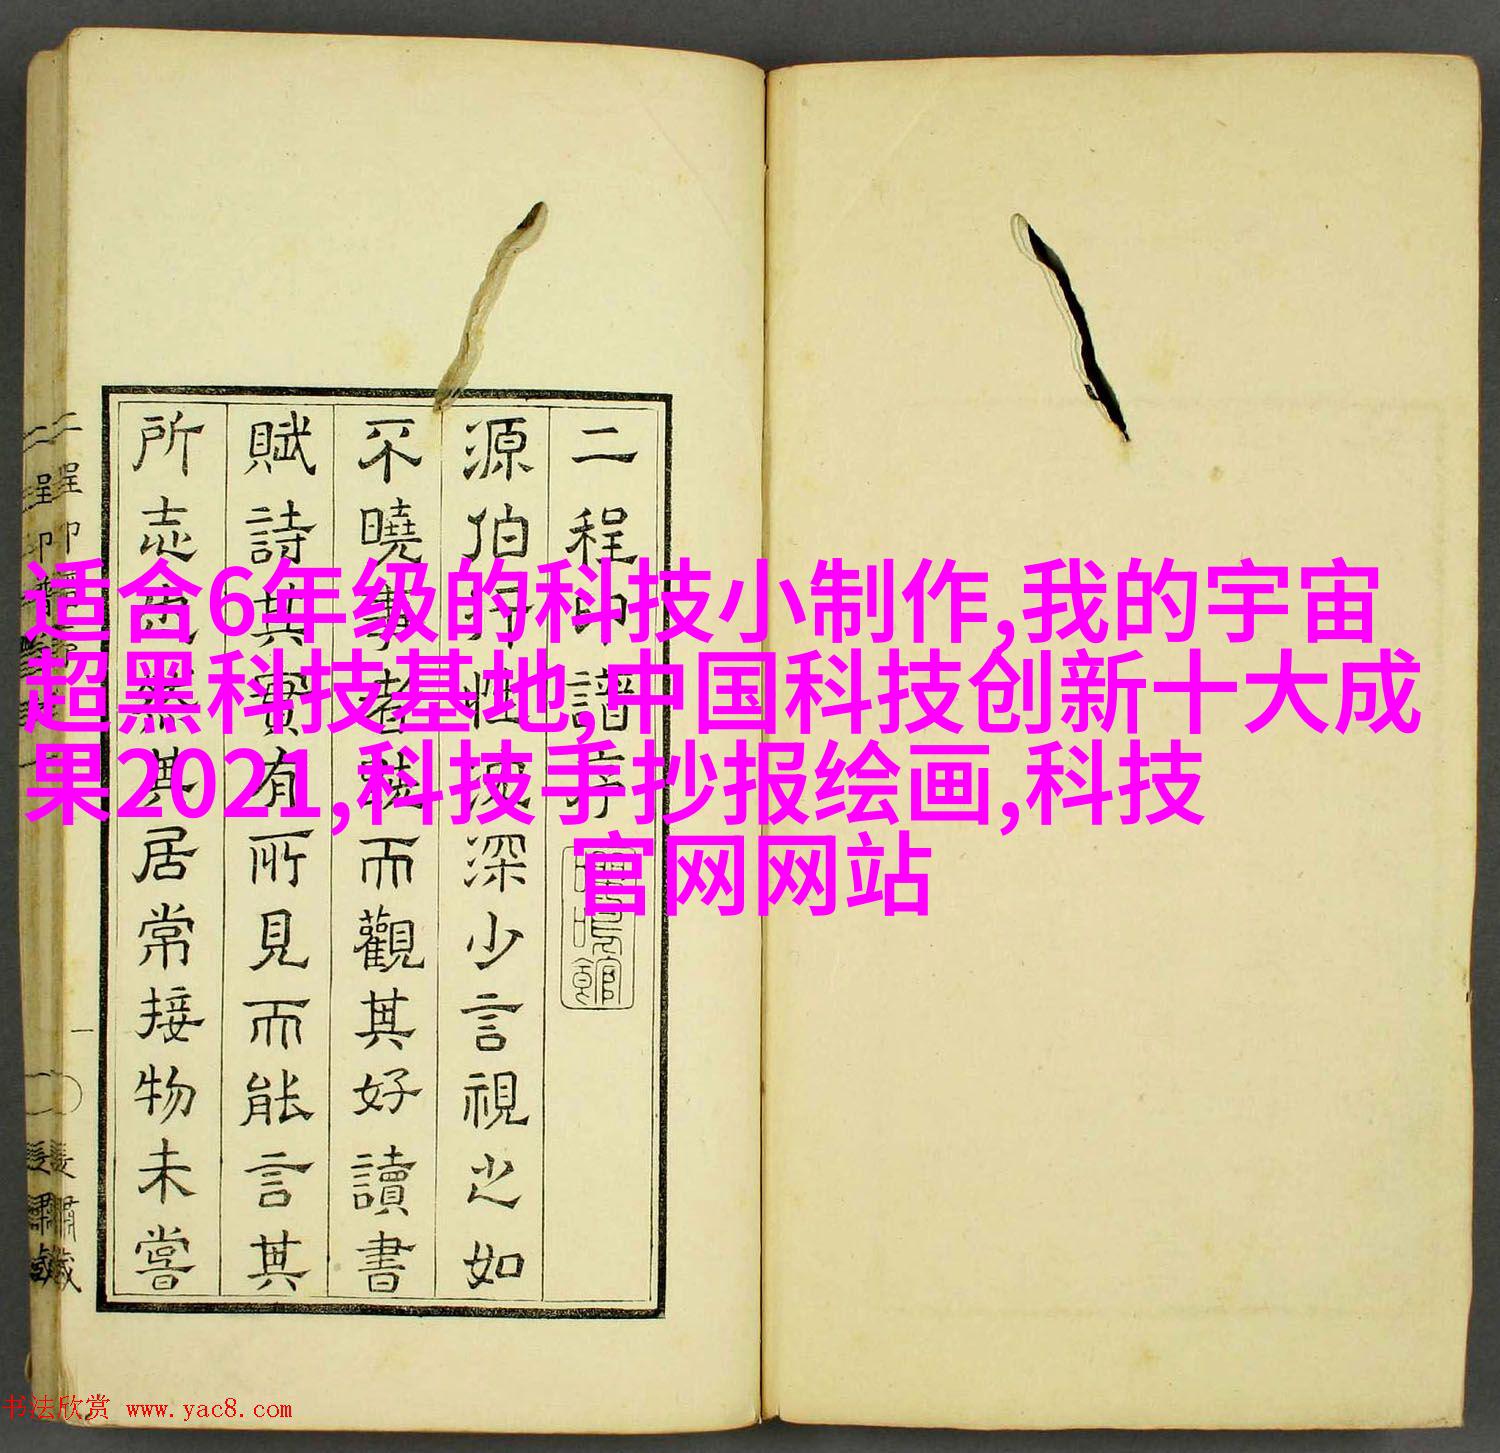 适合6年级的科技小制作,我的宇宙
超黑科技基地,中国科技创新十大成
果2021,科技手抄报绘画,科技
官网网站
二程印譜序
源伯行性沈深少言視之如
不曉事者就而觀其好讀書
賦詩其實有所見而能言其
所志也然其居常接物未嘗
书法欣赏 www.yac8.com